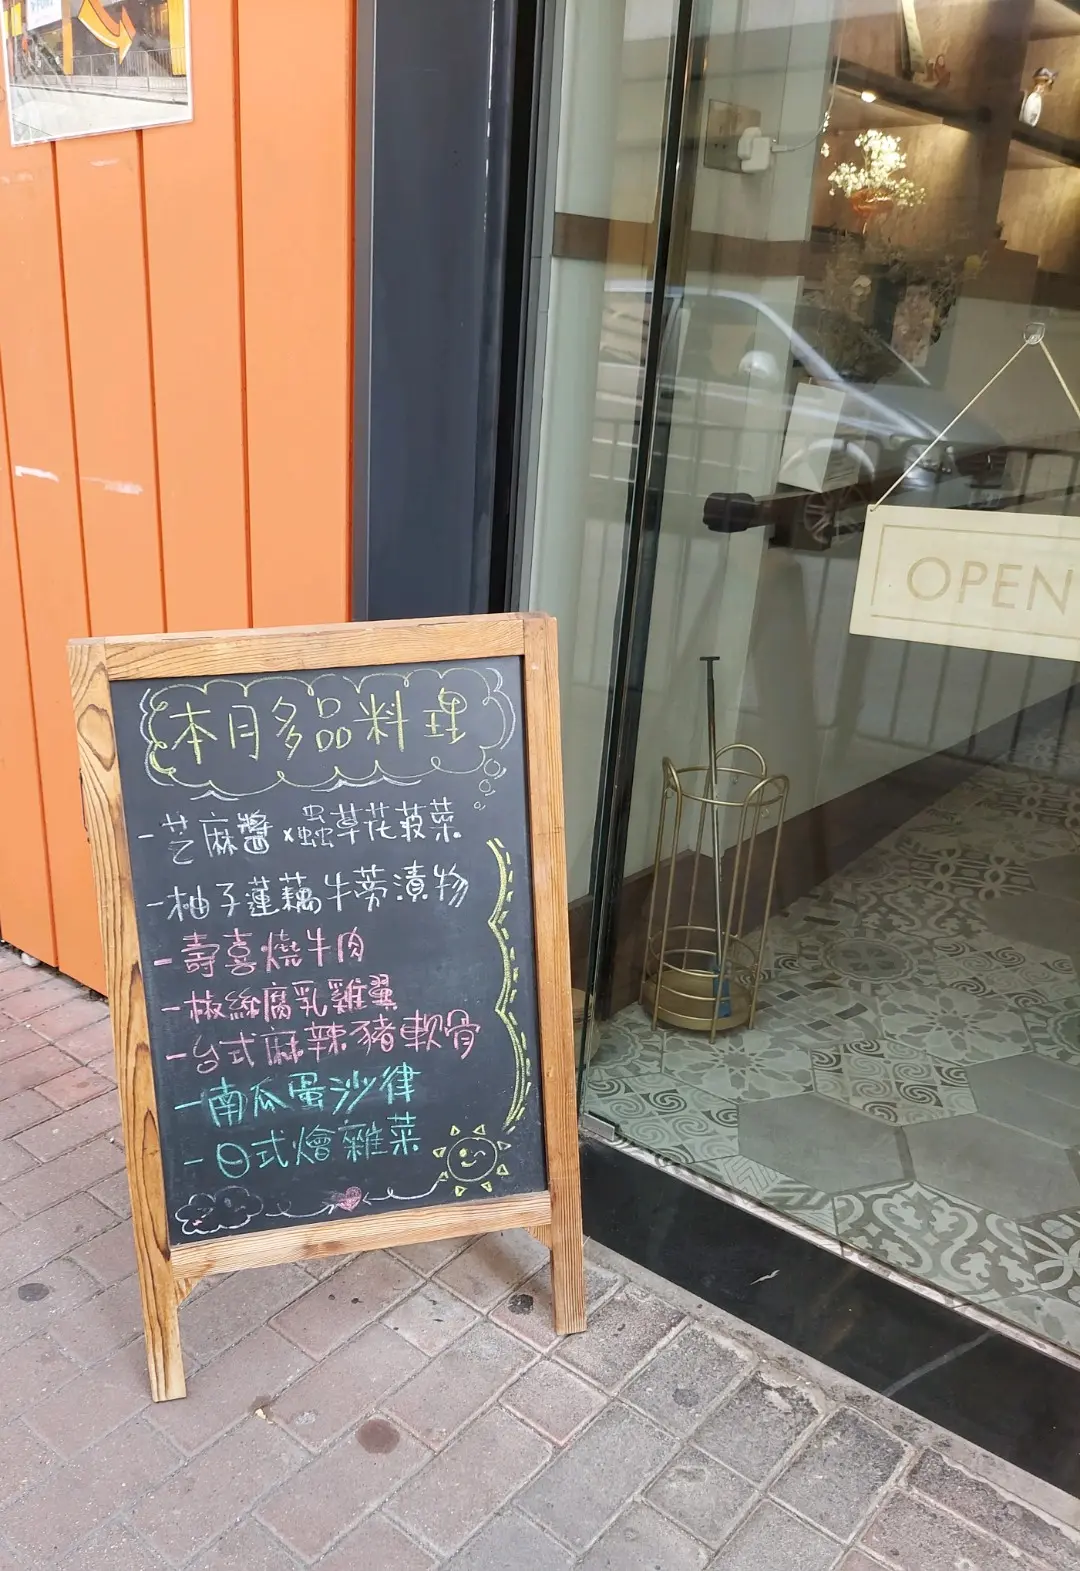 本月多品料理
-芝麻醬x蟲草花菠菜
-柚子蓮藕牛蒡漬物
-壽喜燒牛肉
-椒絲腐乳雞翼
-台式麻辣豬軟骨
-南瓜蛋沙律
-日式燴雜菜
OPEN